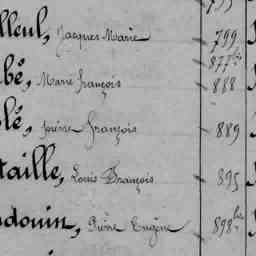 lleul, Jacques Marie 799
877 bis
bé, Marie françois 888
lé, pierre françois 889
taille, Louis François 895
udouin, Pierre Eugène 898 bis